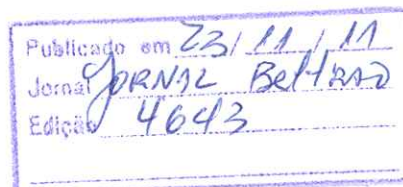 Publicado em 23/11/11
Jornal JORNAL Beltrão
Edição 4643